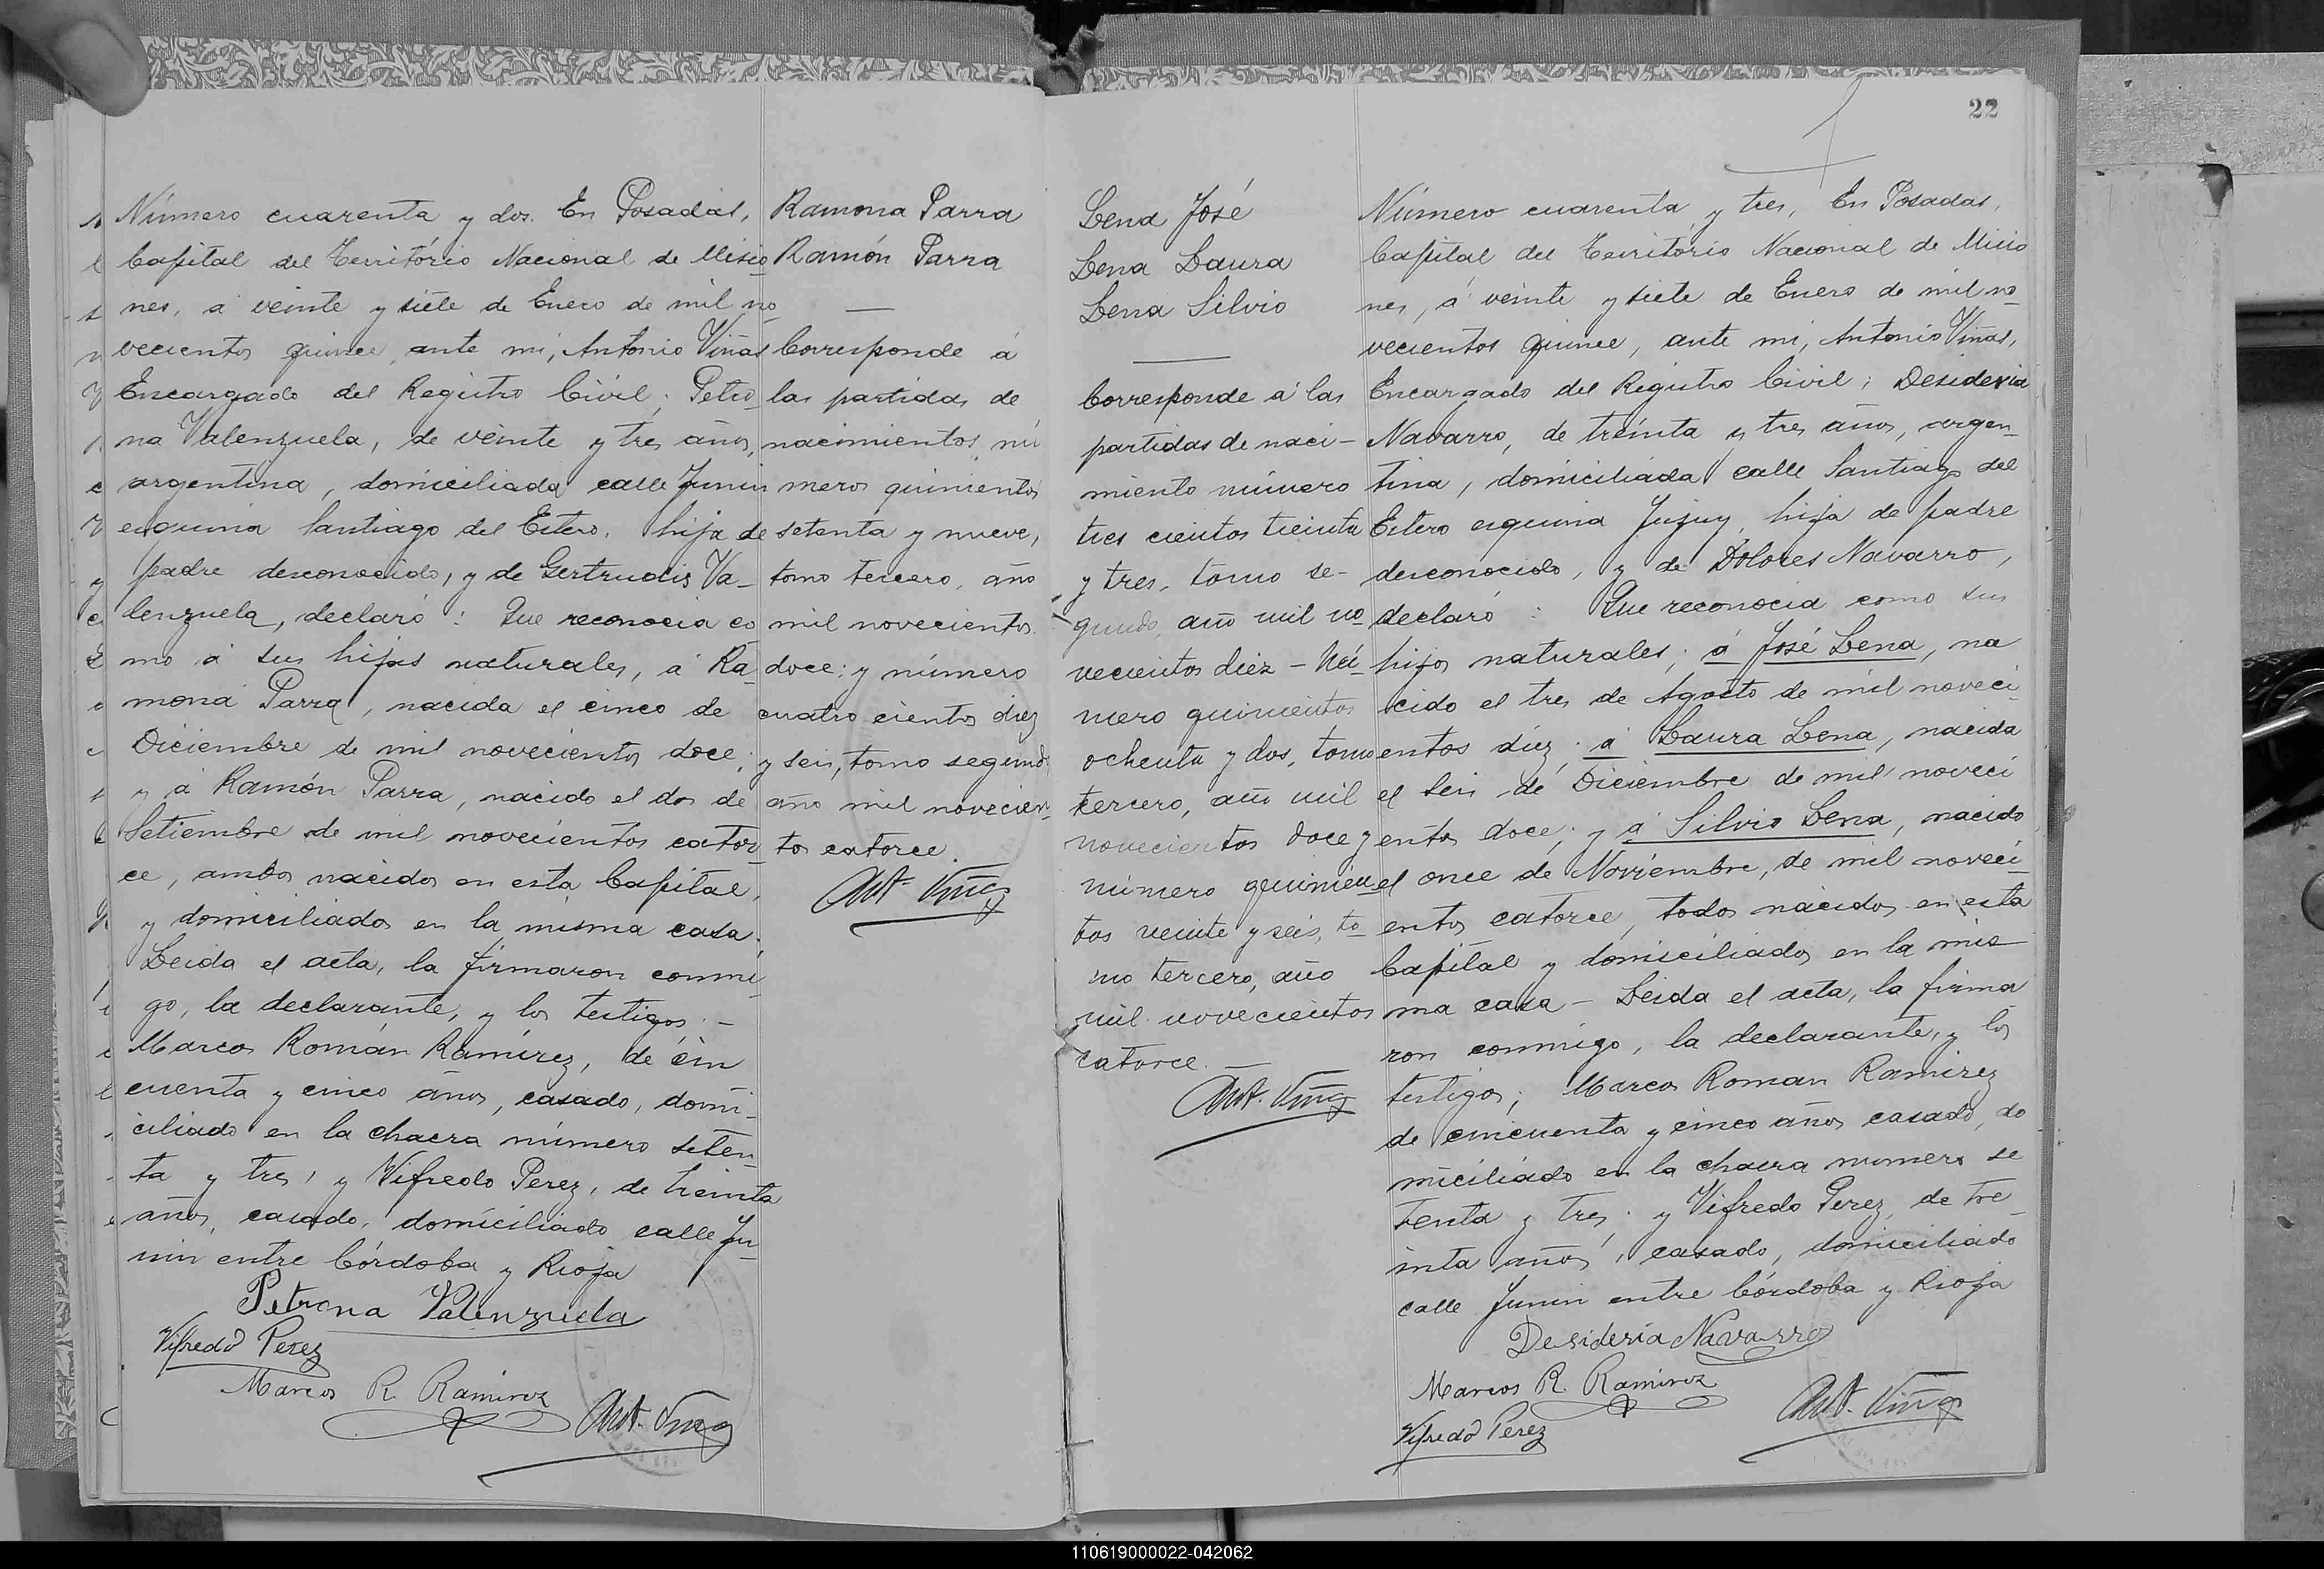 Número cuarenta y dos. En Posadas,
Capital del Território Nacional de Misio
nes, á veinte y siete de Enero de mil no
vecientos quince, ante mi, Antonio Viñas
Encargado del Registro Civil; Petro
na Valenzuela, de veinte y tres años,
argentina, domiciliada calle Junin
esquina Santiago del Estero, hija de
padre desconocido, y de Gertrudis Va-
lenzuela, declaró: Que reconocia co
mo á sus hijos naturales, á Ra
mona Parra, nacida el cinco de
Diciembre de mil novecientos doce,
y á Ramón Parra, nacido el dos de
Setiembre de mil novecientos cator
ce, ambos nacidos en esta Capital,
y domiciliados en la misma casa.
Leida el acta, la firmaron conmi
go, la declarante, y los testigos.-
Marcos Román Ramírez, de cin
cuenta y cinco años, casado, domi-
ciliado en la chacra número seten
ta y tres, y Vifredo Perez, de treinta
años, casado, domiciliado calle Ju
nin entre Córdoba y Rioja
Petrona Valenzuela
Vifredo Perez
Marcos R. Ramirez
Ant. Viñas
Ramona Parra
Ramón Parra
Corresponde á
las partidas de
nacimientos, nú
meros quinientos
setenta y nueve,
tomo tercero, año
mil novecientos
doce; y número
cuatro cientos diez
y seis, tomo segundo
año mil novecien
tos catorce.
Ant. Viñas
22
Lena José
Lena Laura
Lena Silvio
Corresponde á las
partidas de naci-
miento número
tres cientos treinta
y tres, tomo se-
gundo, año mil no
vecientos diez - Nú-
mero quinientos
ochenta y dos, tomo
tercero, año mil
novecientos doce y
número quinien
tos veinte y seis, to
mo tercero, año
mil novecientos
catorce.-
Ant. Viñas
Número cuarenta y tres, En Posadas,
Capital del Território Nacional de Misio
nes, á veinte y siete de Enero de mil no
vecientos quince, ante mi, Antonio Viñas,
Encargado del Registro Civil; Desideria
Navarro, de treinta y tres años, argen
tina, domiciliada calle Santiago del
Estero esquina Jujuy, hija de padre
desconocido, y de Dolores Navarro,
declaró: Que reconocia como sus
hijos naturales; á José Lena, na
cido el tres de Agosto de mil noveci
entos diez; á Laura Lena, nacida
el seis de Diciembre de mil noveci
entos doce; y á Silvio Lena, nacido
el once de Noviembre, de mil noveci-
entos catorce, todos nacidos en esta
Capital y domiciliados en la mis
ma casa - Leida el acta, la firma
ron conmigo, la declarante, y los
testigos; Marcos Roman Ramirez
de cincuenta y cinco años casado, do
miciliado en la chacra numero se
tenta y tres; y Vifredo Perez, de tre
inta años, casado, domiciliado
calle Junin entre Córdoba y Rioja
Desideria Navarro
Marcos R. Ramirez
Ant. Viñas
Vifredo Perez
110619000022-042062